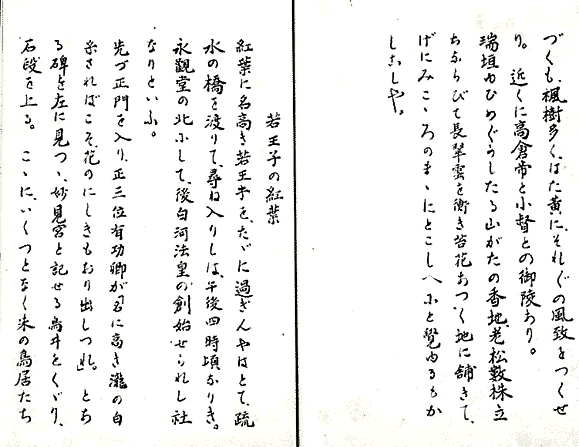 づくも、楓樹多く、はた黄に、それ〲の風致をつくせ
り。 近くに高倉帝と小督との御陵あり。
瑞垣ゆひめぐらしたる山がたの香地、老松数株立
ちならびて長翠雲を衝き苔花あつく地に舗きて、
げにみこゝろのまゝにとこしへにと覚ゆるもか
しこしや。
若王子の紅葉
紅葉に名高き若王子を、たゞに過ぎんやはとて、疏
水の橋を渡りて、尋ね入りしは、午後四時頃なりき。
永観堂の北にして、後白河法皇の創始せられし社
なりといふ。
先づ正門を入り、正三位有功卿が「名に高き瀧の白
糸さればこそ、花のにしきもおり出しつれ」とあ
る碑を左に見つゝ、妙見宮と記せる鳥井をくゞり、
石段を上る。 こゝに、いくつとなく朱の鳥居たち